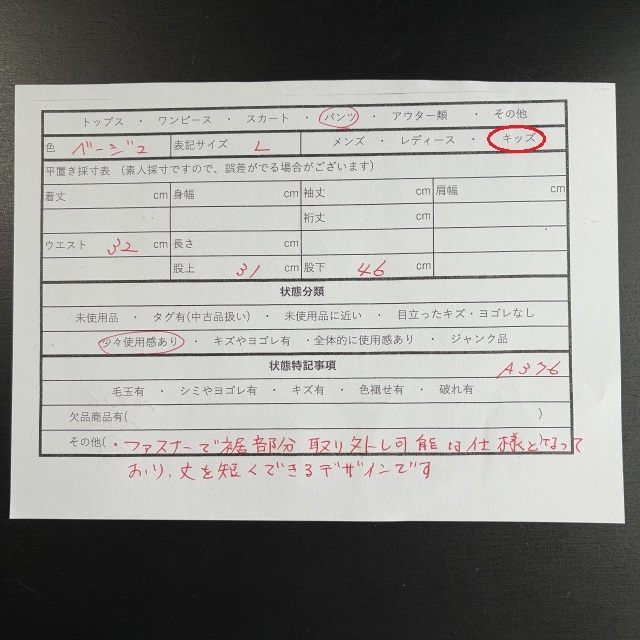 トップス ・ ワンピース ・ スカート ・ パンツ ・ アウター類 ・ その他
色 ベージュ 表記サイズ L メンズ ・ レディース ・ キッズ
平置き採寸表 (素人採寸ですので、誤差がでる場合がございます)
着丈 cm 身幅 cm 袖丈 cm 肩幅 cm
裄丈 cm
ウエスト 32 cm 長さ cm
股上 31 cm 股下 46 cm
状態分類
未使用品 ・ タグ有(中古品扱い) ・ 未使用品に近い ・ 目立ったキズ・ヨゴレなし
少々使用感あり ・ キズやヨゴレ有 ・全体的に使用感あり ・ ジャンク品
状態特記事項 A376
毛玉有 ・ シミやヨゴレ有 ・ キズ有 ・ 色褪せ有 ・ 破れ有
欠品商品有( )
その他( ・ファスナーで裾部分 取り外し可能な仕様となって
おり、丈を短くできるデザインです